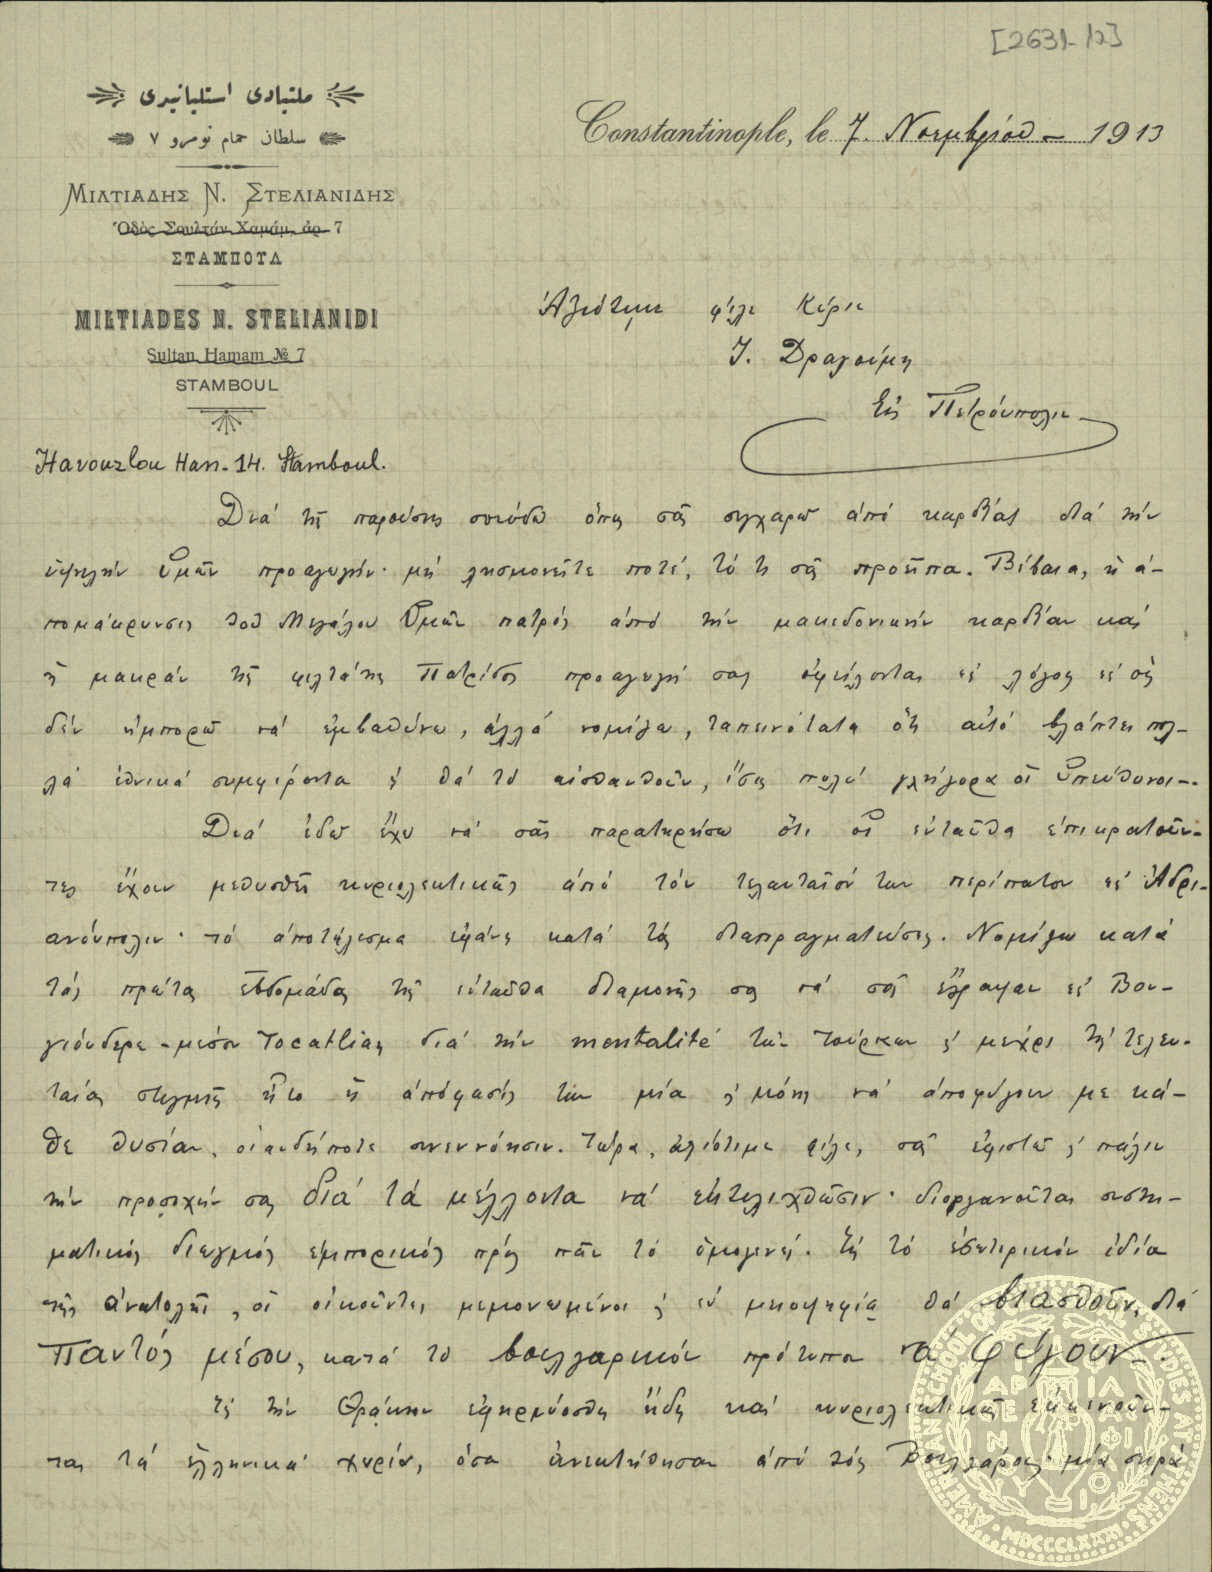 [2631-12]
ملتیادی استلیانیدی
سلطان حمام نومرو ٧
ΜΙΛΤΙΑΔΗΣ Ν. ΣΤΕΛΙΑΝΙΔΗΣ
Ὁδὸς Σουλτὰν Χαμάμ, ἀρ. 7
ΣΤΑΜΠΟΥΛ
MILTIADES N. STELIANIDI
Sultan Hamam № 7
STAMBOUL
Havouzlou Han. 14. Stamboul.
Constantinople, le 7. Νοεμβρίου 1913
Ἀξιότιμε φίλε Κύριε
Ἰ. Δραγούμη
Εἰς Πετρούπολιν
Διὰ τῆς παρούσης σπεύδω ὅπως σᾶς συγχαρῶ ἀπὸ καρδίας διὰ τὴν
ὑψηλὴν Ὑμῶν προαγωγήν· μὴ λησμονεῖτε ποτέ, τὸ τι σᾶς προεῖπα. Βέβαια, ἡ ἀ-
πομάκρυνσις τοῦ Μεγάλου Ὑμῶν πατρὸς ἀπὸ τὴν μακεδονικὴν καρδίαν καὶ
ἡ μακρὰν τῆς φιλτάτης Πατρίδος προαγωγή σας ὀφείλονται εἰς λόγους εἰς οὓς
δὲν εἰμπορῶ νὰ ἐμβαθύνω, ἀλλὰ νομίζω, ταπεινότατα ὅτι αὐτὸ βλάπτει πολ-
λὰ ἐθνικὰ συμφέροντα κ' θὰ τὸ αἰσθανθοῦν, ἴσως πολὺ γλήγορα οἱ Ὑπεύθυνοι.-
Διὰ ἐδῶ ἔχω νὰ σᾶς παρατηρήσω ὅτι οἱ ἐνταῦθα ἐπικρατοῦν-
τες ἔχουν μεθυσθῆ κυριολεκτικῶς ἀπὸ τὸν τελευταῖόν των περίπατον εἰς Ἀδρι-
ανούπολιν· τὸ ἀποτέλεσμα ἐφάνη κατὰ τὰς διαπραγματεύσεις. Νομίζω κατὰ
τὰς πρώτας ἑβδομάδας τῆς ἐνταῦθα διαμονῆς σας νὰ σᾶς ἔγραψα εἰς Βου-
γιούκδερε - μέσον Tocatlian διὰ τὴν mentalité τῶν Τούρκων κ' μέχρι τῆς τελευ-
ταίας στιγμῆς ἦτο ἡ ἀπόφασίς των μία κ' μόνη νὰ ἀποφύγουν με κά-
θε θυσίαν, οἱανδήποτε συνεννόησιν. Τώρα, ἀξιότιμε φίλε, σᾶς ἐφιστῶ κ' πάλιν
τὴν προσοχήν σας διὰ τὰ μέλλοντα νὰ ἐκτυλιχθῶσιν· διοργανοῦται συστη-
ματικὸς διωγμὸς ἐμπορικὸς πρὸς πᾶν τὸ ὁμογενές. Εἰς τὸ ἐσωτερικὸν ἰδίᾳ
τῆς ἀνατολῆς, οἱ οἰκοῦντες μεμονωμένοι κ' ἐν μειοψηφίᾳ θὰ βιασθοῦν, διὰ
παντὸς μέσου, κατὰ τὸ βουλγαρικὸν πρότυπον νὰ φύγουν.-
Εἰς τὴν Θρᾴκην ἐφηρμόσθη ἤδη καὶ κυριολεκτικῶς ἐκκενοῦν-
ται τὰ ἑλληνικὰ χωρία, ὅσα ἀνεκτήθησαν ἀπὸ τοὺς Βουλγάρους· μία σειρὰ
AMERICAN SCHOOL OF CLASSICAL STUDIES AT ATHENS
MDCCCLXXXI